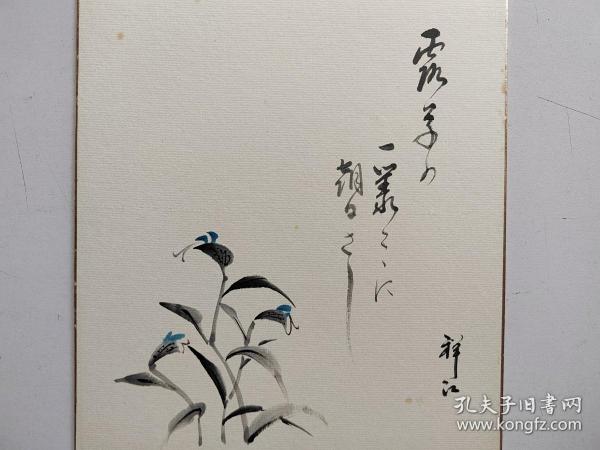 露草の
一叢こゝに
朝日さし
祥江
孔夫子旧书网
www.kongfz.com